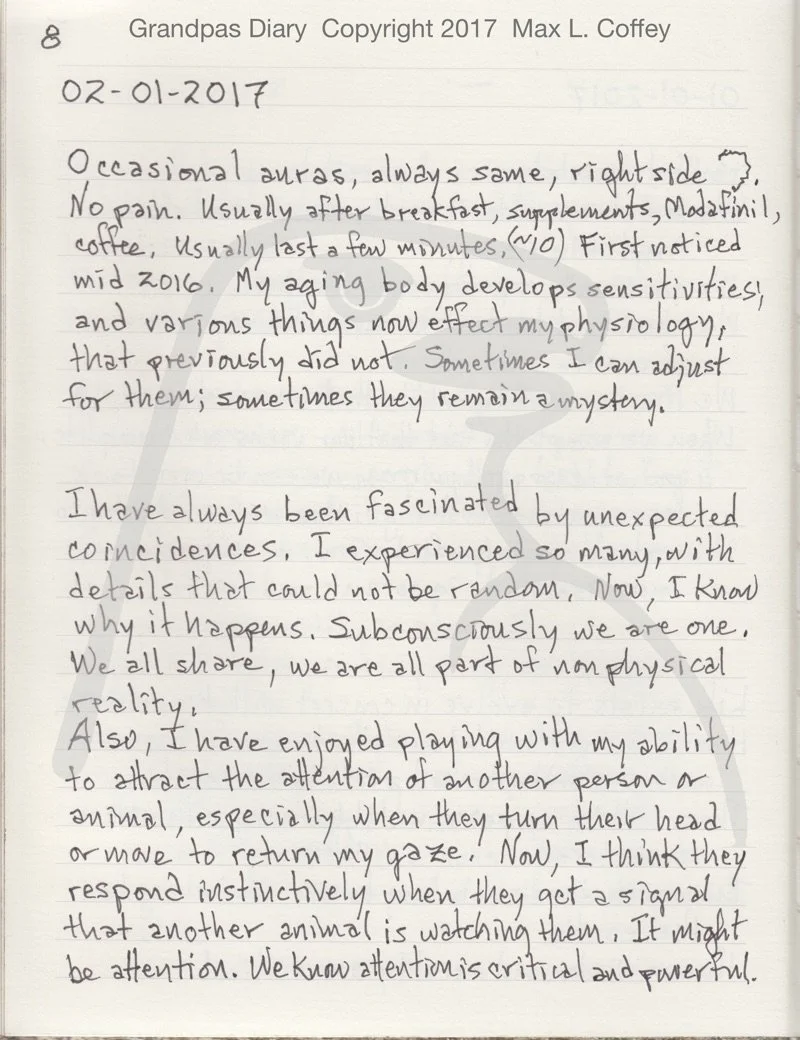 8
Grandpas Diary Copyright 2017 Max L. Coffey
02-01-2017
Occasional auras, always same, right side .
No pain. Usually after breakfast, supplements, Modafinil,
coffee. Usually last a few minutes, (~10) First noticed
mid 2016. My aging body develops sensitivities,
and various things now effect my physiology,
that previously did not. Sometimes I can adjust
for them; sometimes they remain a mystery.
I have always been fascinated by unexpected
coincidences. I experienced so many, with
details that could not be random. Now, I know
why it happens. Subconsciously we are one.
We all share, we are all part of nonphysical
reality.
Also, I have enjoyed playing with my ability
to attract the attention of another person or
animal, especially when they turn their head
or move to return my gaze. Now, I think they
respond instinctively when they get a signal
that another animal is watching them. It might
be attention. We know attention is critical and powerful.